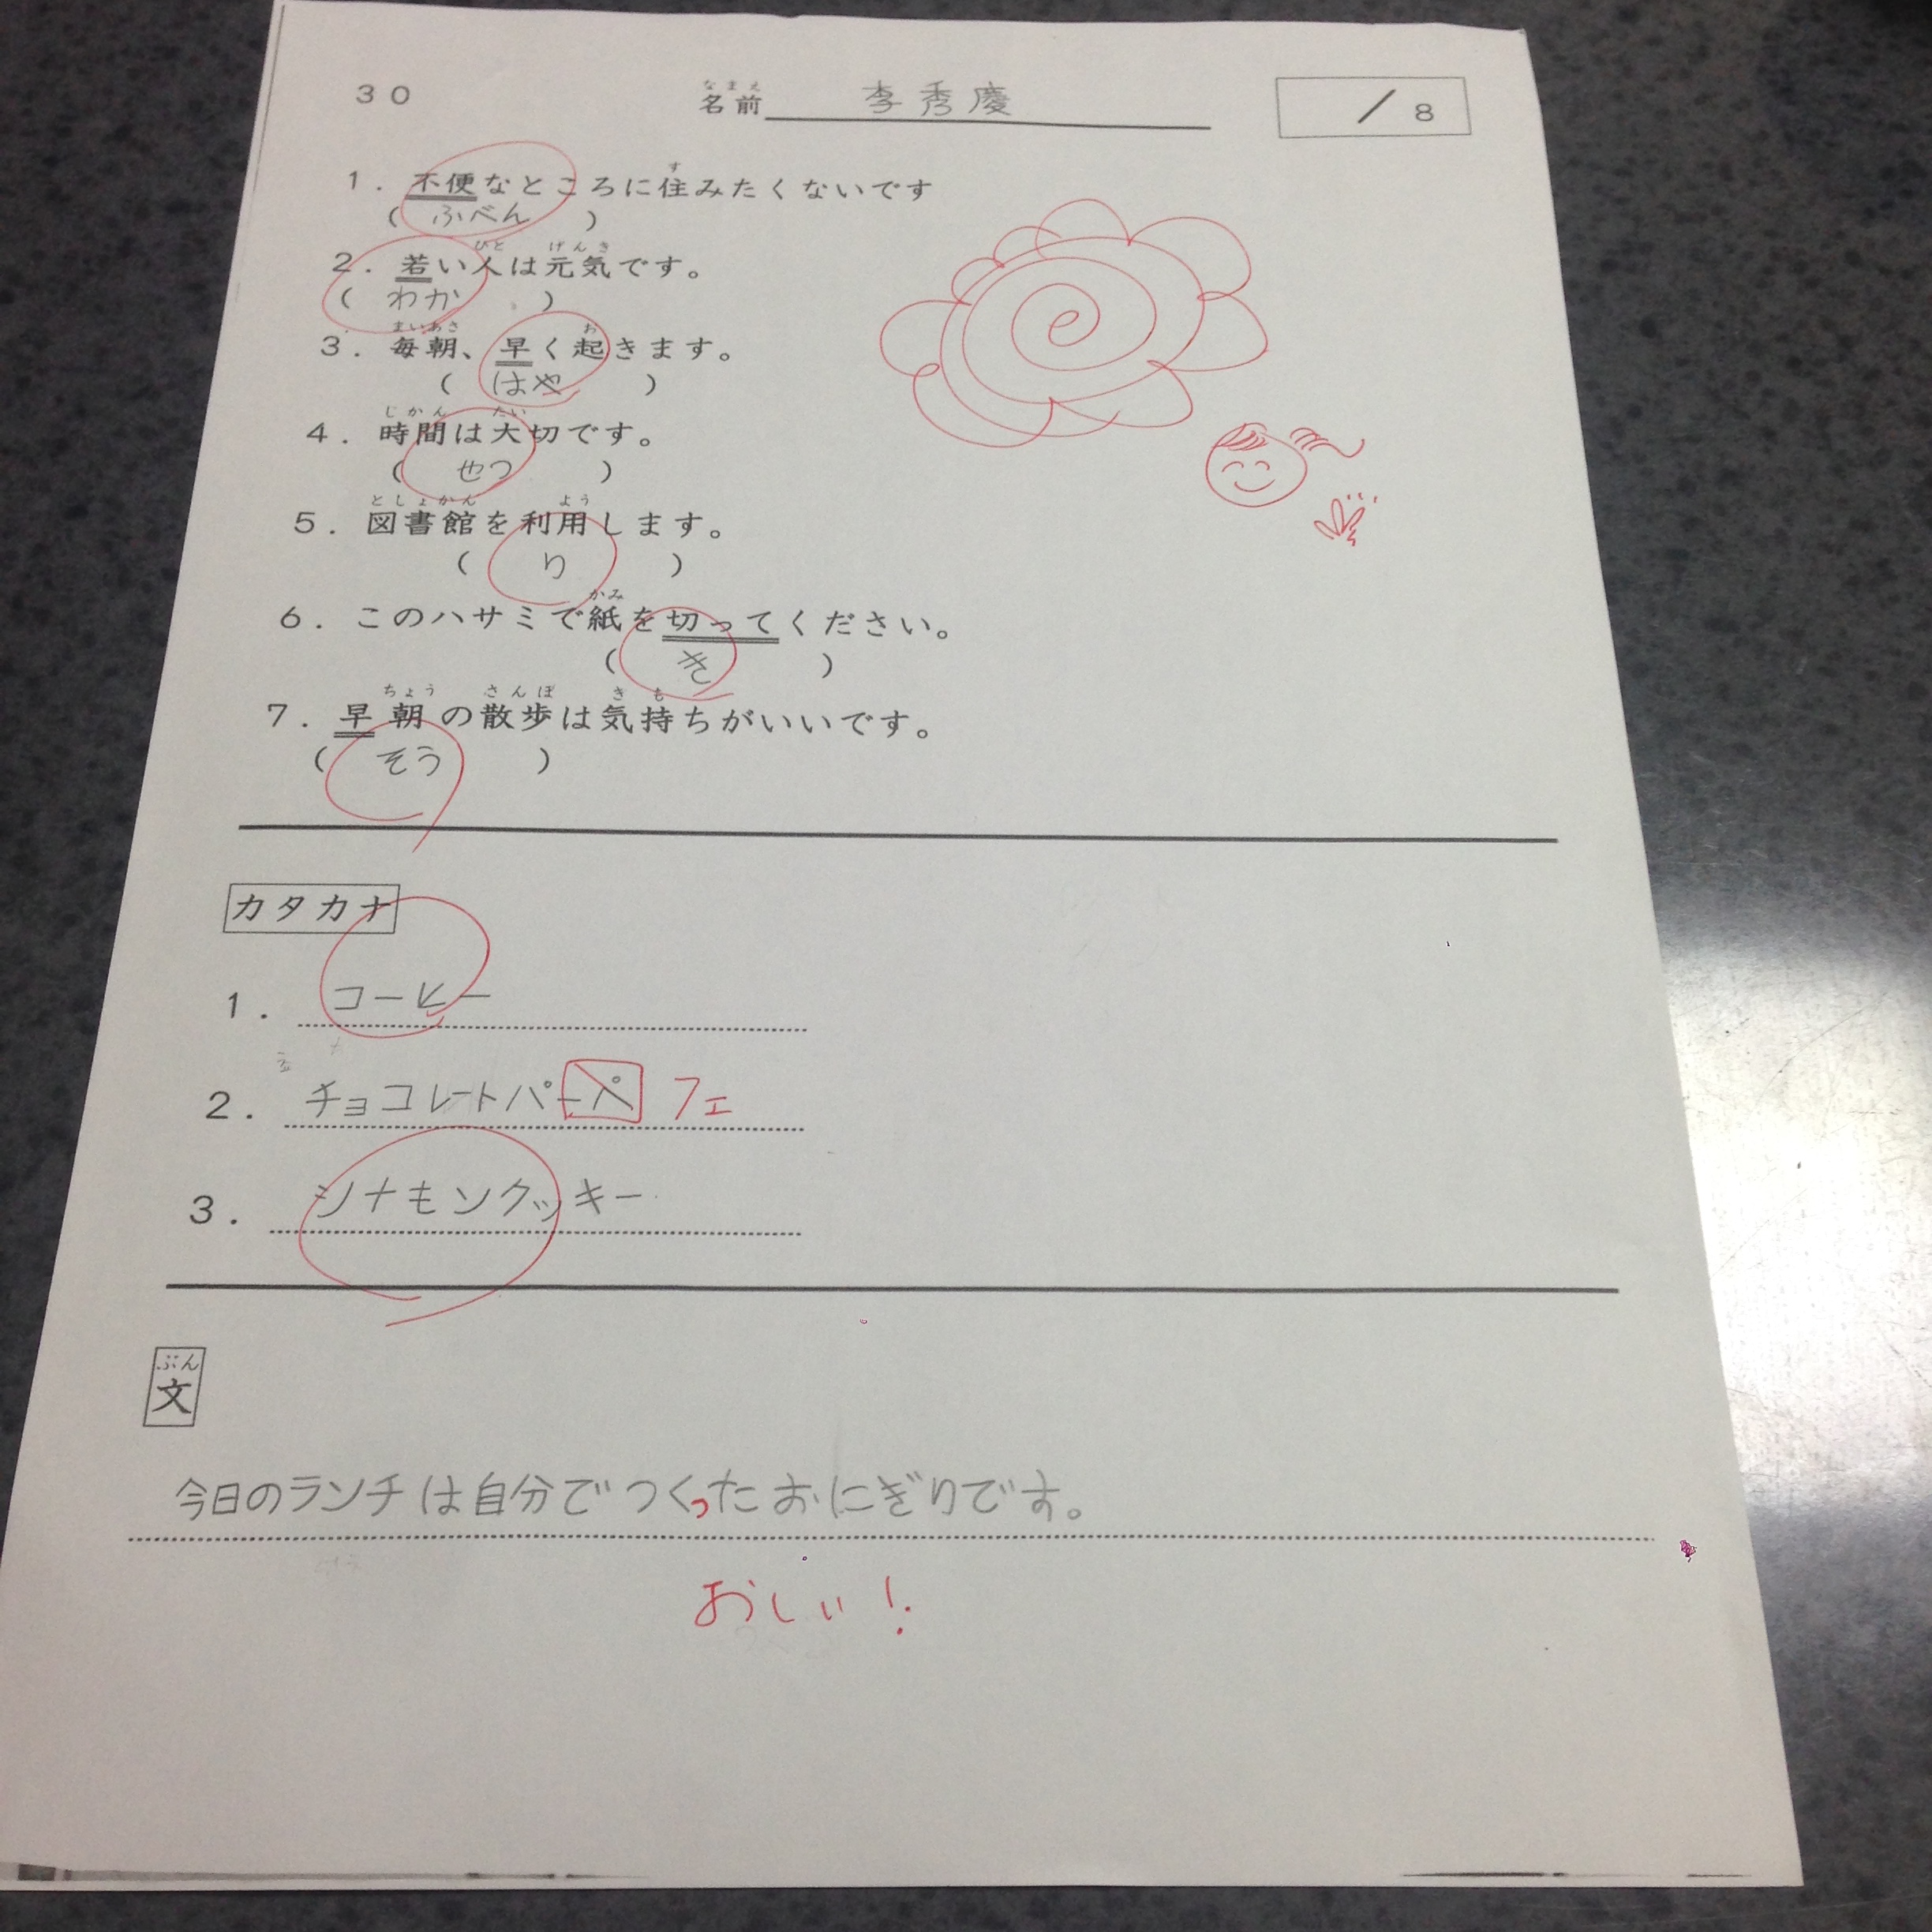 30 名前 李秀慶 / 8
なまえ
1. 不便なところに住みたくないです
す
( ふべん )
2. 若い人は元気です。
ひと げんき
( わか )
3. 毎朝、早く起きます。
まいあさ お
( はや )
4. 時間は大切です。
じかん たい
( せつ )
5. 図書館を利用します。
としょかん よう
( り )
6. このハサミで紙を切ってください。
かみ
( き )
7. 早朝の散歩は気持ちがいいです。
ちょう さんぽ き も
( そう )
カタカナ
1. コーヒー
2. チョコレートパーペ フェ
3. シナモンクッキー
ぶん
文
今日のランチは自分でつくったおにぎりです。
おしい!